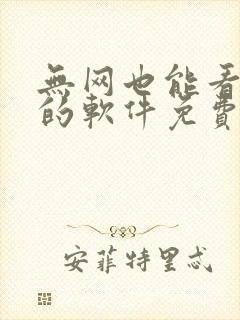 無网也能看
的軟件免費
安菲特里忒